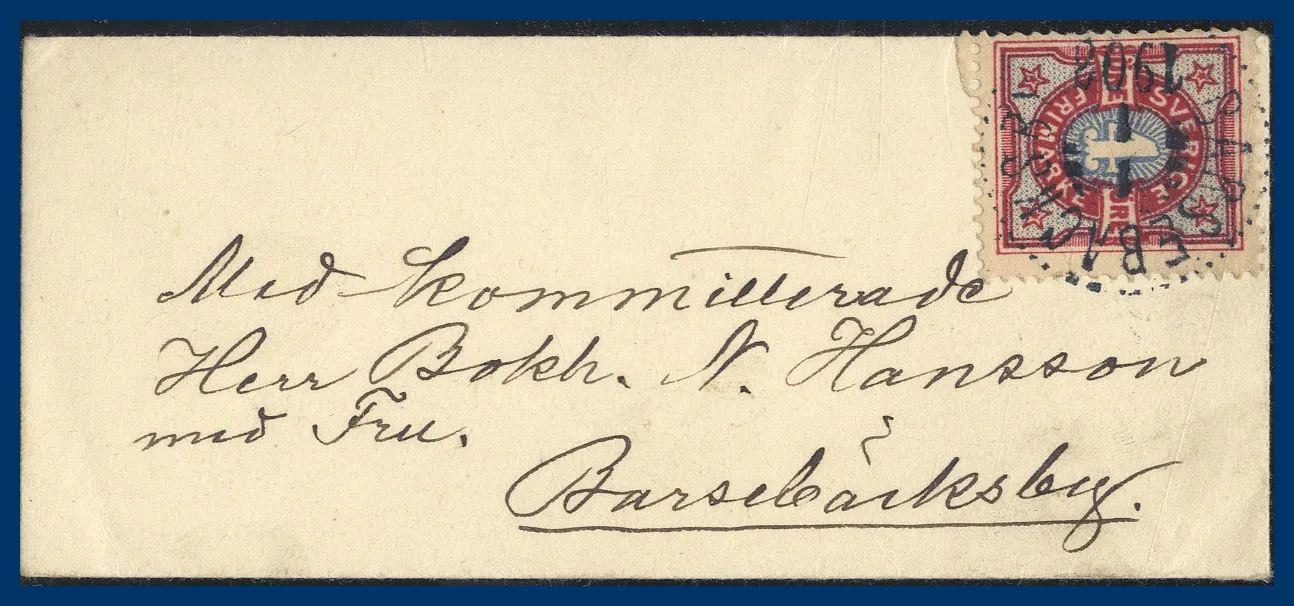 Med Kommitterade
Herr Bokh. N. Hansson
med Fru.
Barsebäcksby.
SVERIGE
FRIMÄRKE
1
1